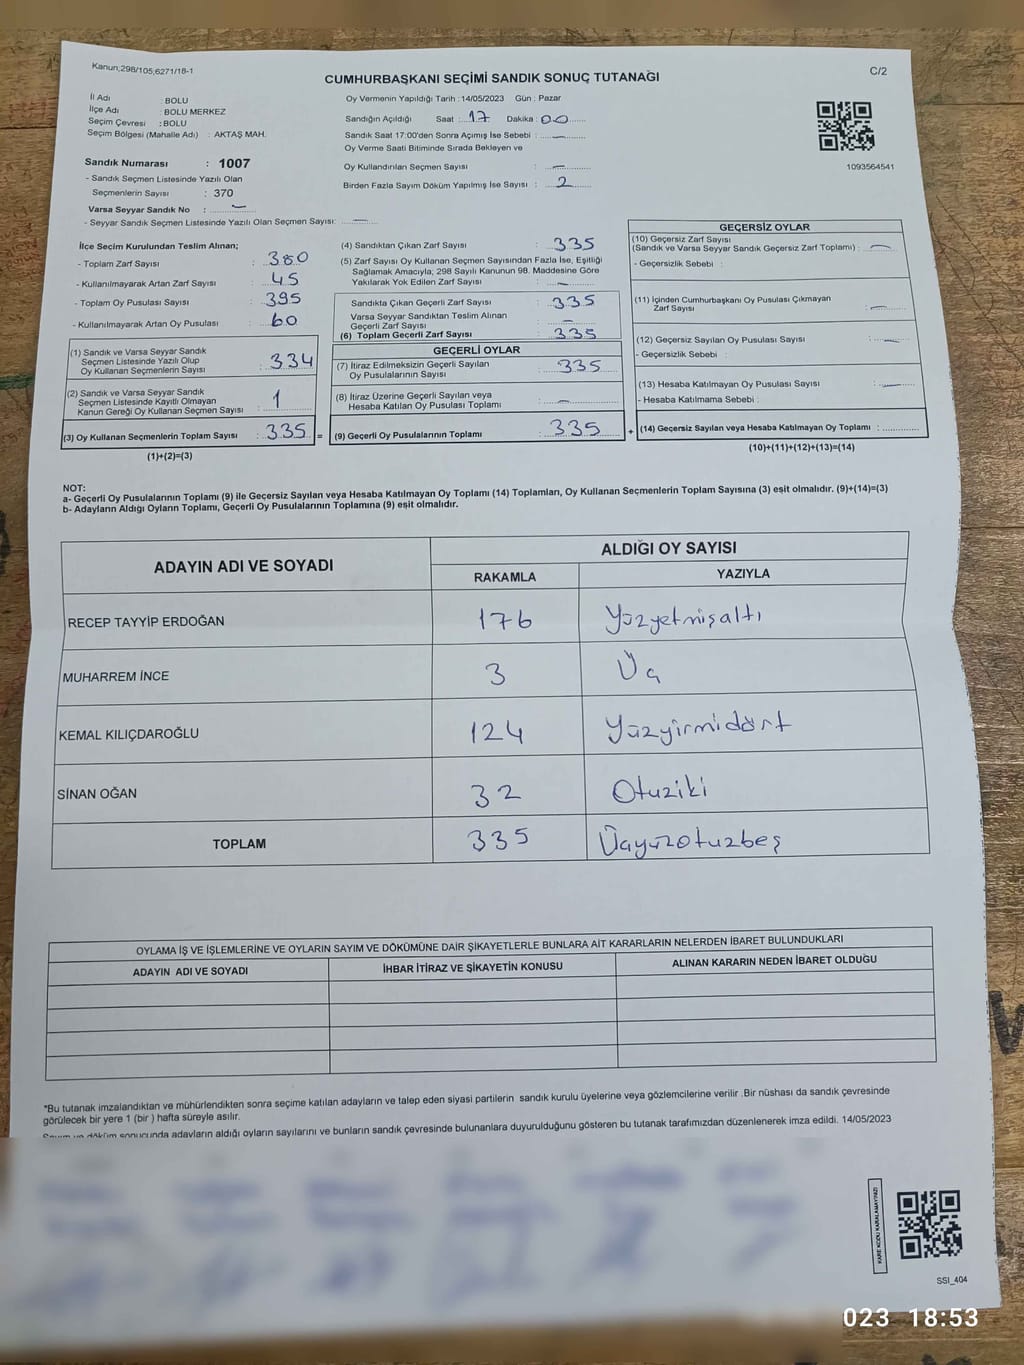 Kanun;298/105;6271/18-1
C/2
CUMHURBAŞKANI SEÇİMİ SANDIK SONUÇ TUTANAĞI
İl Adı : BOLU
İlçe Adı : BOLU MERKEZ
Seçim Çevresi : BOLU
Seçim Bölgesi (Mahalle Adı) : AKTAŞ MAH.
Sandık Numarası : 1007
- Sandık Seçmen Listesinde Yazılı Olan
Seçmenlerin Sayısı : 370
Varsa Seyyar Sandık No : –
- Seyyar Sandık Seçmen Listesinde Yazılı Olan Seçmen Sayısı: –
Oy Vermenin Yapıldığı Tarih :14/05/2023 Gün : Pazar
Sandığın Açıldığı Saat : 17 Dakika : 00
Sandık Saat 17:00'den Sonra Açımış İse Sebebi : –
Oy Verme Saati Bitiminde Sırada Bekleyen ve
Oy Kullandırılan Seçmen Sayısı : –
Birden Fazla Sayım Döküm Yapılmış İse Sayısı : 2
1093564541
İlçe Seçim Kurulundan Teslim Alınan;
- Toplam Zarf Sayısı : 380
- Kullanılmayarak Artan Zarf Sayısı : 45
- Toplam Oy Pusulası Sayısı : 395
- Kullanılmayarak Artan Oy Pusulası : 60
(1) Sandık ve Varsa Seyyar Sandık
Seçmen Listesinde Yazılı Olup
Oy Kullanan Seçmenlerin Sayısı : 334
(2) Sandık ve Varsa Seyyar Sandık
Seçmen Listesinde Kayıtlı Olmayan
Kanun Gereği Oy Kullanan Seçmen Sayısı : 1
(3) Oy Kullanan Seçmenlerin Toplam Sayısı : 335 =
(1)+(2)=(3)
(4) Sandıktan Çıkan Zarf Sayısı : 335
(5) Zarf Sayısı Oy Kullanan Seçmen Sayısından Fazla İse, Eşitliği
Sağlamak Amacıyla; 298 Sayılı Kanunun 98. Maddesine Göre
Yakılarak Yok Edilen Zarf Sayısı : –
Sandıkta Çıkan Geçerli Zarf Sayısı : 335
Varsa Seyyar Sandıktan Teslim Alınan
Geçerli Zarf Sayısı : –
(6) Toplam Geçerli Zarf Sayısı : 335
GEÇERLİ OYLAR
(7) İtiraz Edilmeksizin Geçerli Sayılan
Oy Pusulalarının Sayısı : 335
(8) İtiraz Üzerine Geçerli Sayılan veya
Hesaba Katılan Oy Pusulası Toplamı : –
(9) Geçerli Oy Pusulalarının Toplamı : 335 +
GEÇERSİZ OYLAR
(10) Geçersiz Zarf Sayısı
(Sandık ve Varsa Seyyar Sandık Geçersiz Zarf Toplamı) : –
- Geçersizlik Sebebi :
(11) İçinden Cumhurbaşkanı Oy Pusulası Çıkmayan
Zarf Sayısı : –
(12) Geçersiz Sayılan Oy Pusulası Sayısı : –
- Geçersizlik Sebebi :
(13) Hesaba Katılmayan Oy Pusulası Sayısı : –
- Hesaba Katılmama Sebebi :
(14) Geçersiz Sayılan veya Hesaba Katılmayan Oy Toplamı :
(10)+(11)+(12)+(13)=(14)
NOT:
a- Geçerli Oy Pusulalarının Toplamı (9) ile Geçersiz Sayılan veya Hesaba Katılmayan Oy Toplamı (14) Toplamları, Oy Kullanan Seçmenlerin Toplam Sayısına (3) eşit olmalıdır. (9)+(14)=(3)
b- Adayların Aldığı Oyların Toplamı, Geçerli Oy Pusulalarının Toplamına (9) eşit olmalıdır.
ADAYIN ADI VE SOYADI
ALDIĞI OY SAYISI
RAKAMLA YAZIYLA
RECEP TAYYİP ERDOĞAN 176 Yüzyetmişaltı
MUHARREM İNCE 3 Üç
KEMAL KILIÇDAROĞLU 124 Yüzyirmidört
SİNAN OĞAN 32 Otuziki
TOPLAM 335 Üçyüzotuzbeş
OYLAMA İŞ VE İŞLEMLERİNE VE OYLARIN SAYIM VE DÖKÜMÜNE DAİR ŞİKAYETLERLE BUNLARA AİT KARARLARIN NELERDEN İBARET BULUNDUKLARI
ADAYIN ADI VE SOYADI İHBAR İTİRAZ VE ŞİKAYETİN KONUSU ALINAN KARARIN NEDEN İBARET OLDUĞU
*Bu tutanak imzalandıktan ve mühürlendikten sonra seçime katılan adayların ve talep eden siyasi partilerin sandık kurulu üyelerine veya gözlemcilerine verilir .Bir nüshası da sandık çevresinde
görülecek bir yere 1 (bir ) hafta süreyle asılır.
Sayım ve döküm sonucunda adayların aldığı oyların sayılarını ve bunların sandık çevresinde bulunanlara duyurulduğunu gösteren bu tutanak tarafımızdan düzenlenerek imza edildi. 14/05/2023
KARE KODU KARALAMAYINIZ!
SSI_404
023 18:53